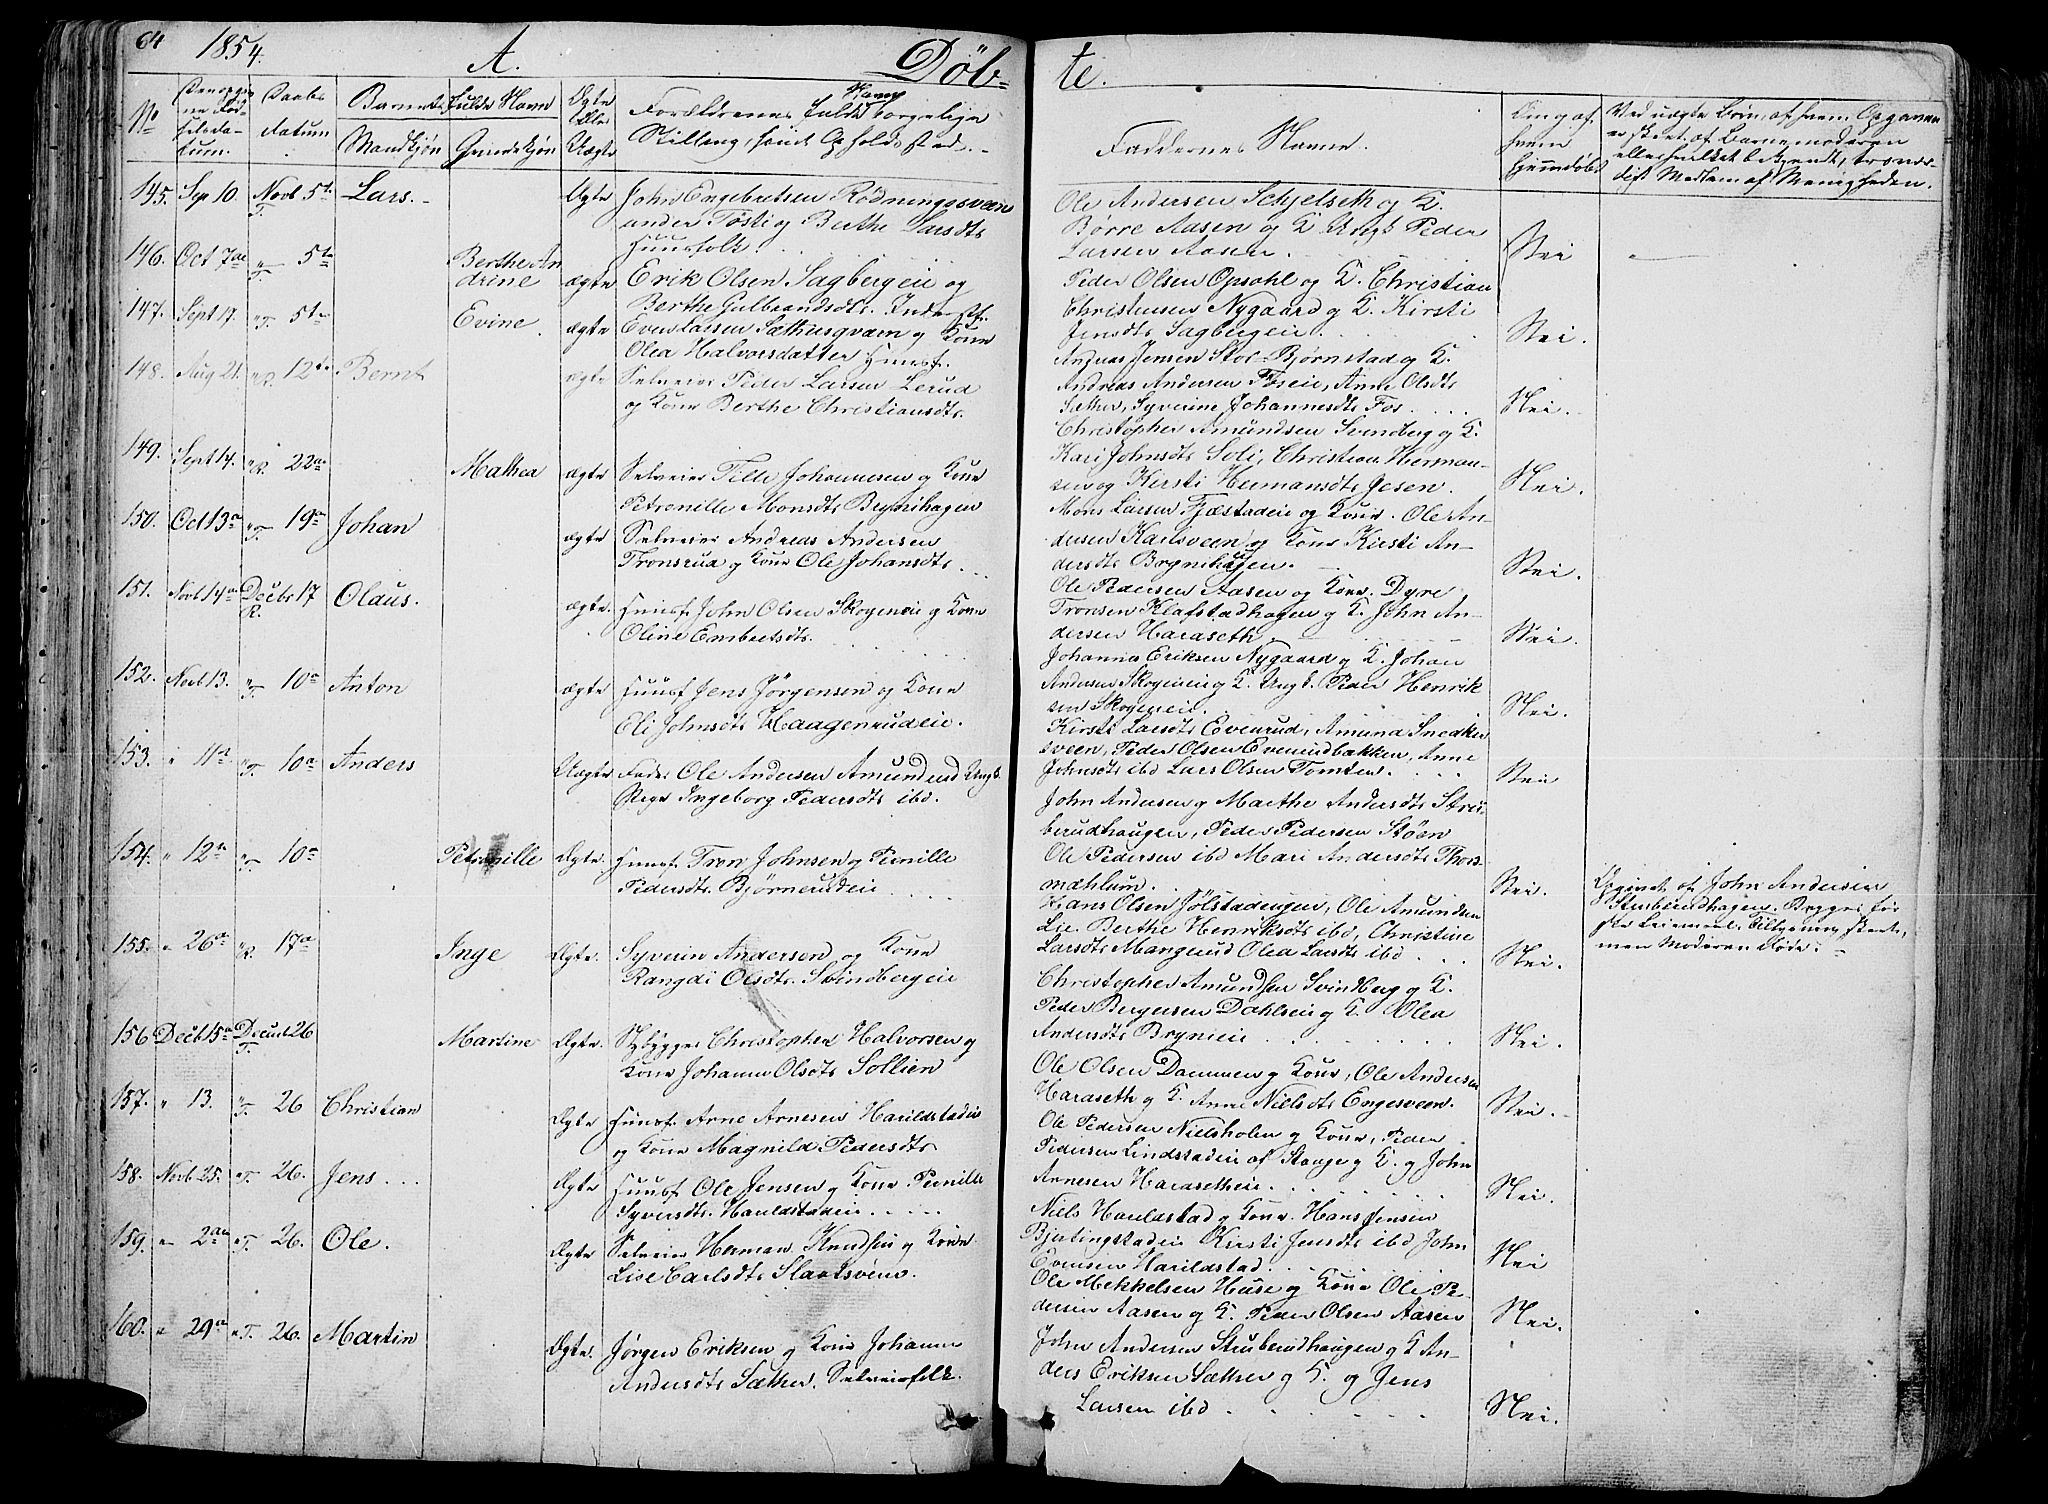 64 1854. A. Döb- te.
No
Barnets fulde Navn
Mandkjön Qvindekjön
Ægte eller Uægte
Forældrenes fulde Navn borgerlige Stilling, samt Opholdssted.
Faddernes Navne.
145. Sep 10. Novb 5te T. Lars. Ægte John Engebretsen Rödningsveen
under Fosti og Berthe Larsdtr
Huusfolk
Ole Andersen Schjelseth og K.
Börre Aasen og K. Ungk. Peder
Larsen Aasen. Nei
146. Oct 7de " T. 5te Berthe An
drine ægte Erik Olsen Sagbergeie og
Berthe Gulbrandsdtr. Inderstf.
Peder Olsen Opsahl og K. Christian
Christensen Nygaard og K. Kirsti
Jensdtr Sagbergeie. Nei.
147. Sept 17. " T. 5te Evine ægte Even Larsen Sæthusqværn og Kone
Olea Halvorsdatter Huusf.
Andreas Jensen Stor-Björnstad og K.
Andreas Andersen Foseie, Anne Olsdtr
Sæther, Syverine Johannesdtr Fos. Nei.
148. Aug 21. " R. 12te Bernt ægte Selveier Peder Larsen Lerud
og Kone Berthe Christiansdtr.
Christopher Amundsen Svindberg og K.
Kari Johnsdtr Soli, Christian Herman-
sen og Kirsti Hermansdtr Jesen. Nei.
149. Sept 14. " R. 22de Mathea ægte Selveier Johannesen og Kone
Petronille Monsdtr Brynihagen
Mons Larsen Fjæstadeie og Kone. Ole An-
dersen Karlsveen og Kone Kirsti An-
dersdtr Brynihagen. Nei.
150. Oct 13de " T. 19de Johan ægte Selveier Andreas Andersen
Tronsrud og Kone Ole Johansdtr.
Ole Pedersen Aasen og Kone. Dyre
Tronsen Klafstadhagen og K. John An-
dersen Haraseth. Nei.
151. Novb 14de Decbr 17 R. Olaus. ægte. Huusf. John Olsen Skogeneie og Kone
Oline Embretsdtr.
Johannes Eriksen Nygaard og K. Johan
Andersen Skogeneie og K. Ungk. Peder Henrik
sen Skogeneie. Nei.
152. Novb 13. " T. 10de Anton ægte Huusf Jens Jörgensen og Kone
Eli Johnsdtr Haagenrudeie.
Kirsti Larsdtr Evenrud, Amund Snedker
sveen, Peder Olsen Evenrudbakken, Anne
Johnsdtr ibd Lars Olsen Tomten. Nei
153. " 11te " T. 10de Anders Uægte Fader Ole Andersen Amundrud Ungk.
Pige Ingeborg Pedersdtr ibd.
John Andersen og Marthe Andersdtr Stru-
berudhaugen, Peder Pedersen Stöen
Ole Pedersen ibd Mari Andersdtr Thors-
mæhlum. Nei.
Opgivet af John Andersen
Struberudhagen. Begges för
ste Leiermaal. Tiltegning skeete,
men Moderen döde.
154. " 12te " T. 10de Petronille Ægte. Huusf. Tron Johnsen og Pernille
Pedersdtr. Björnerudeie
Hans Olsen Jölstadengen, Ole Amundsen
Lie Berthe Henriksdtr ibd, Christine
Larsdtr Mangerud Olea Larsdtr ibd Nei.
155. " 26de " R. 17de Inge Ægte. Syveren Andersen og Kone
Rangdi Olsdtr. Svindbergeie
Christopher Amundsen Svindberg og K.
Peder Bergersen Dahlseie og K. Olea
Andersdtr Brynieie Nei.
156 Decb 15de Decemb 26 T. Martine Ægte. Nybygger Christopher Halvorsen og
Kone Johanne Olsdtr Sollien
Ole Olsen Dammen og Kone, Ole Andersen
Haraseth og K. Anne Nielsdtr Engesveen. Nei.
157. " 13. " T. 26 Christian Ægte Huusf. Arne Arnesen Harildstadeie
og Kone Magnild Pedersdtr
Ole Pedersen Nielsholen og Kone, Peder
Pedersen Lindstadeie af Stange og K. og John
Arnesen Harasetheie. Nei.
158. Novb 25. " T. 26. Jens Ægte Huusf Ole Jensen og Kone Pernille
Syversdtr. Harildstadeie
Niels Harildstad og Kone. Hans Jensen
Bjertingstadeie Kirsti Jensdtr ibd John
Evensen Harildstad. Nei
159. " 2den " T. 26. Ole. Ægte Selveier Herman Knudsen og Kone
Lise Carlsdtr Slaatsveen.
Ole Mekkelsen Huse og Kone Ole Pe-
dersen Aasen og K. Peder Olsen Aasen Nei.
160. " 29de " T. 26. Martin Ægte. Jörgen Eriksen og Kone Johanne
Andersdtr Sæther. Selveierfolk.
John Andersen Struberudhaugen og K An-
ders Eriksen Sæther og K. og Jens
Larsen ibd Nei.